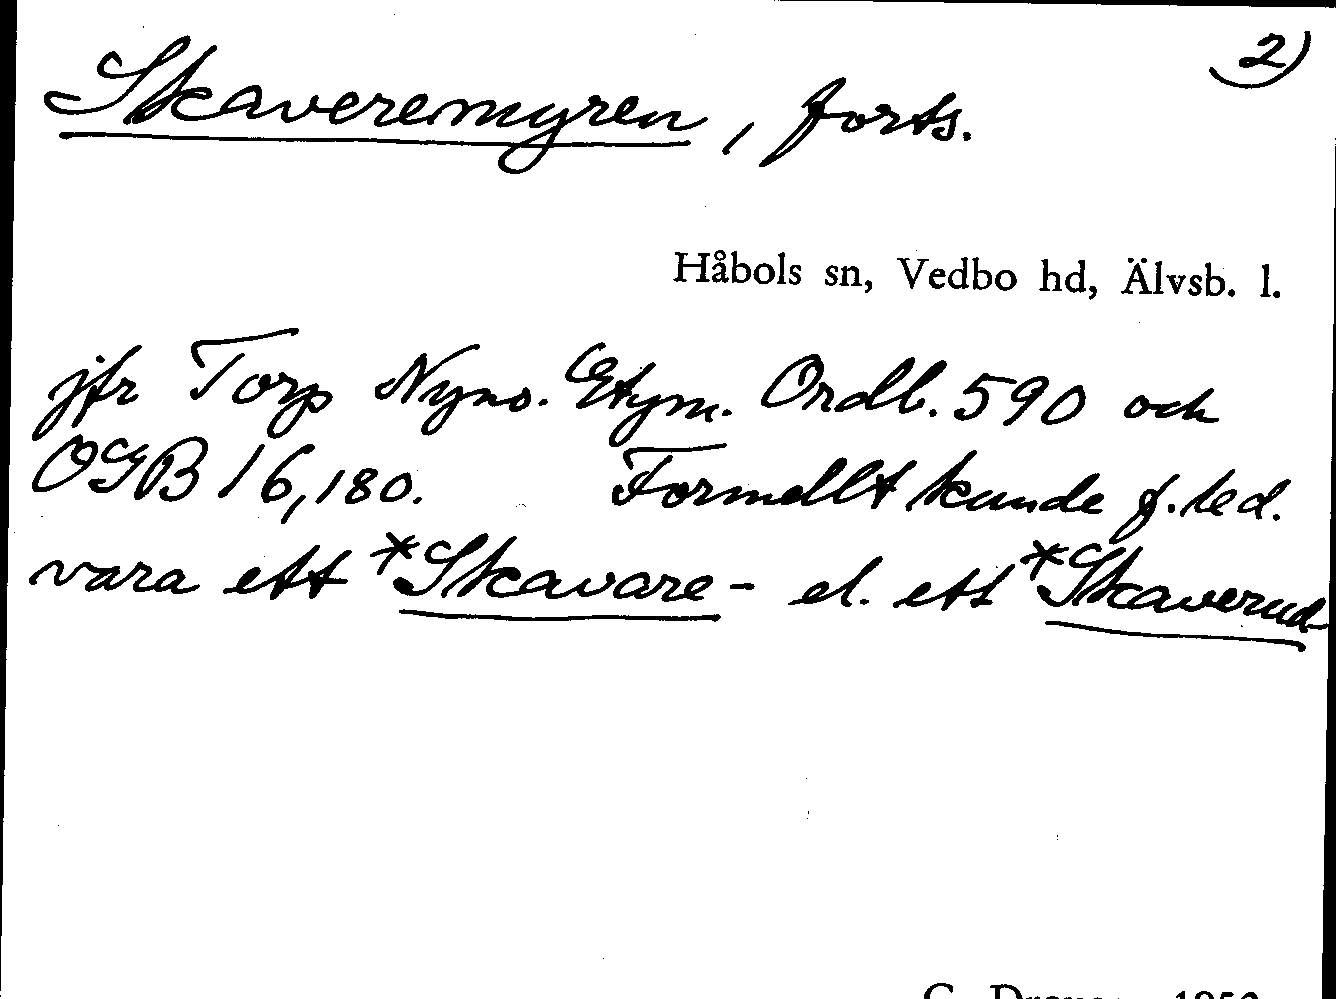 2)
Skaveremyren, forts.
Håbols sn, Vedbo hd, Älvsb. l.
jfr Torp Nyno. Etym. Ordb. 590 och
OGB 16,180. Formellt kunde f.led.
vara ett *Skavare- el. ett *Skaverud-